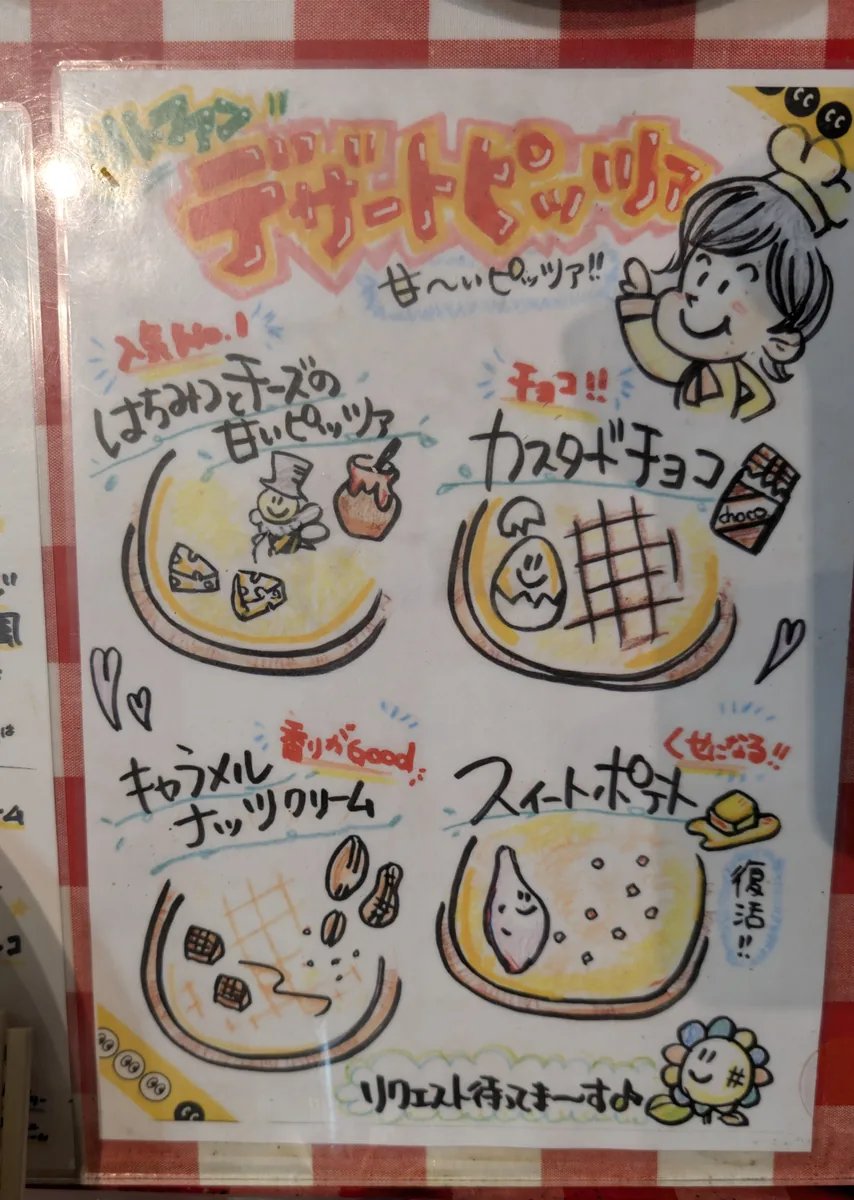 デザートピッツァ
甘〜いピッツァ!!
人気No.1
はちみつとチーズの
甘いピッツァ
チョコ!!
カスタードチョコ
choco
香りがGood
キャラメル
ナッツクリーム
くせになる!!
スイートポテト
復活!!
リクエスト待ってま〜す♪